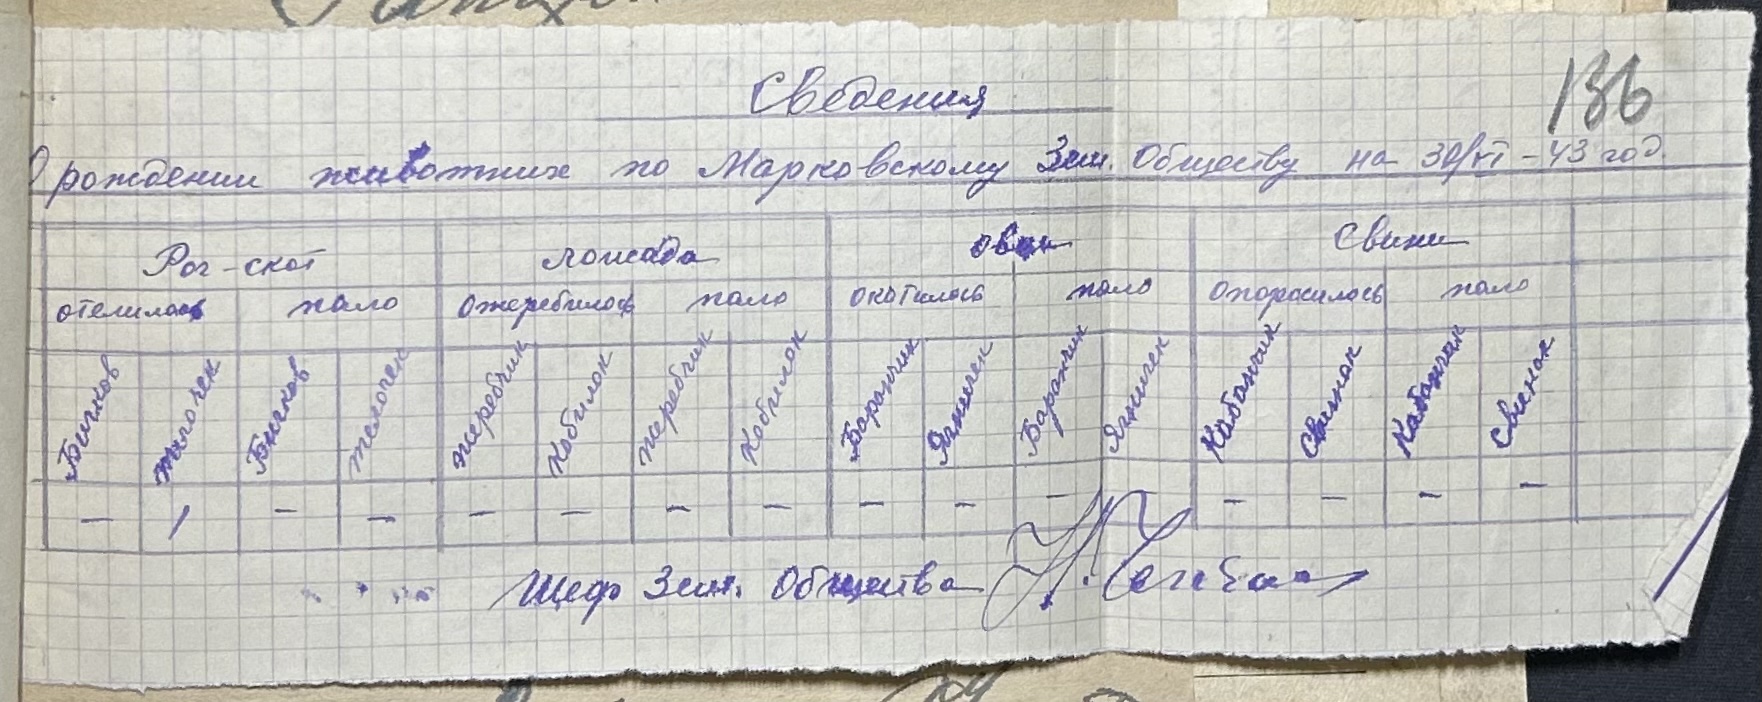 136
Сведения
О рождении животних по Марковскому Зем. Обществу на 30/VI – 43 год.
Рог-скот лошада овци Свини
отелилось пало ожеребилось пало окотилось пало опоросилось пало
Бичков телочек Бичков телочек жеребчик кобилок жеребчик кобилок Баранчик Ягничек Баранчик Ягничек Кабанчик Свинок Кабанчик Свинок
— / — — — — — — — — — — — — —
Шеф Зем. Общества